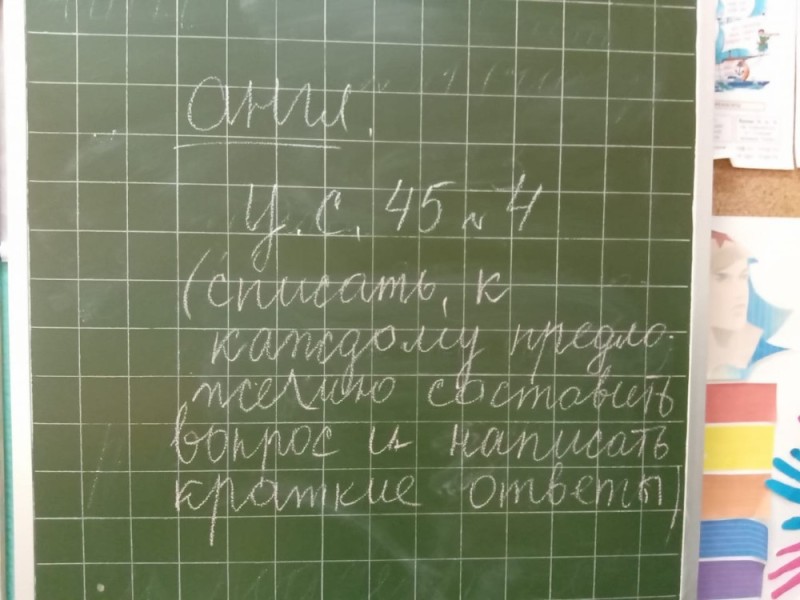 англ.
У. с. 45 № 4
(списать, к
каждому предло-
жению составить
вопрос и написать
краткие ответы)